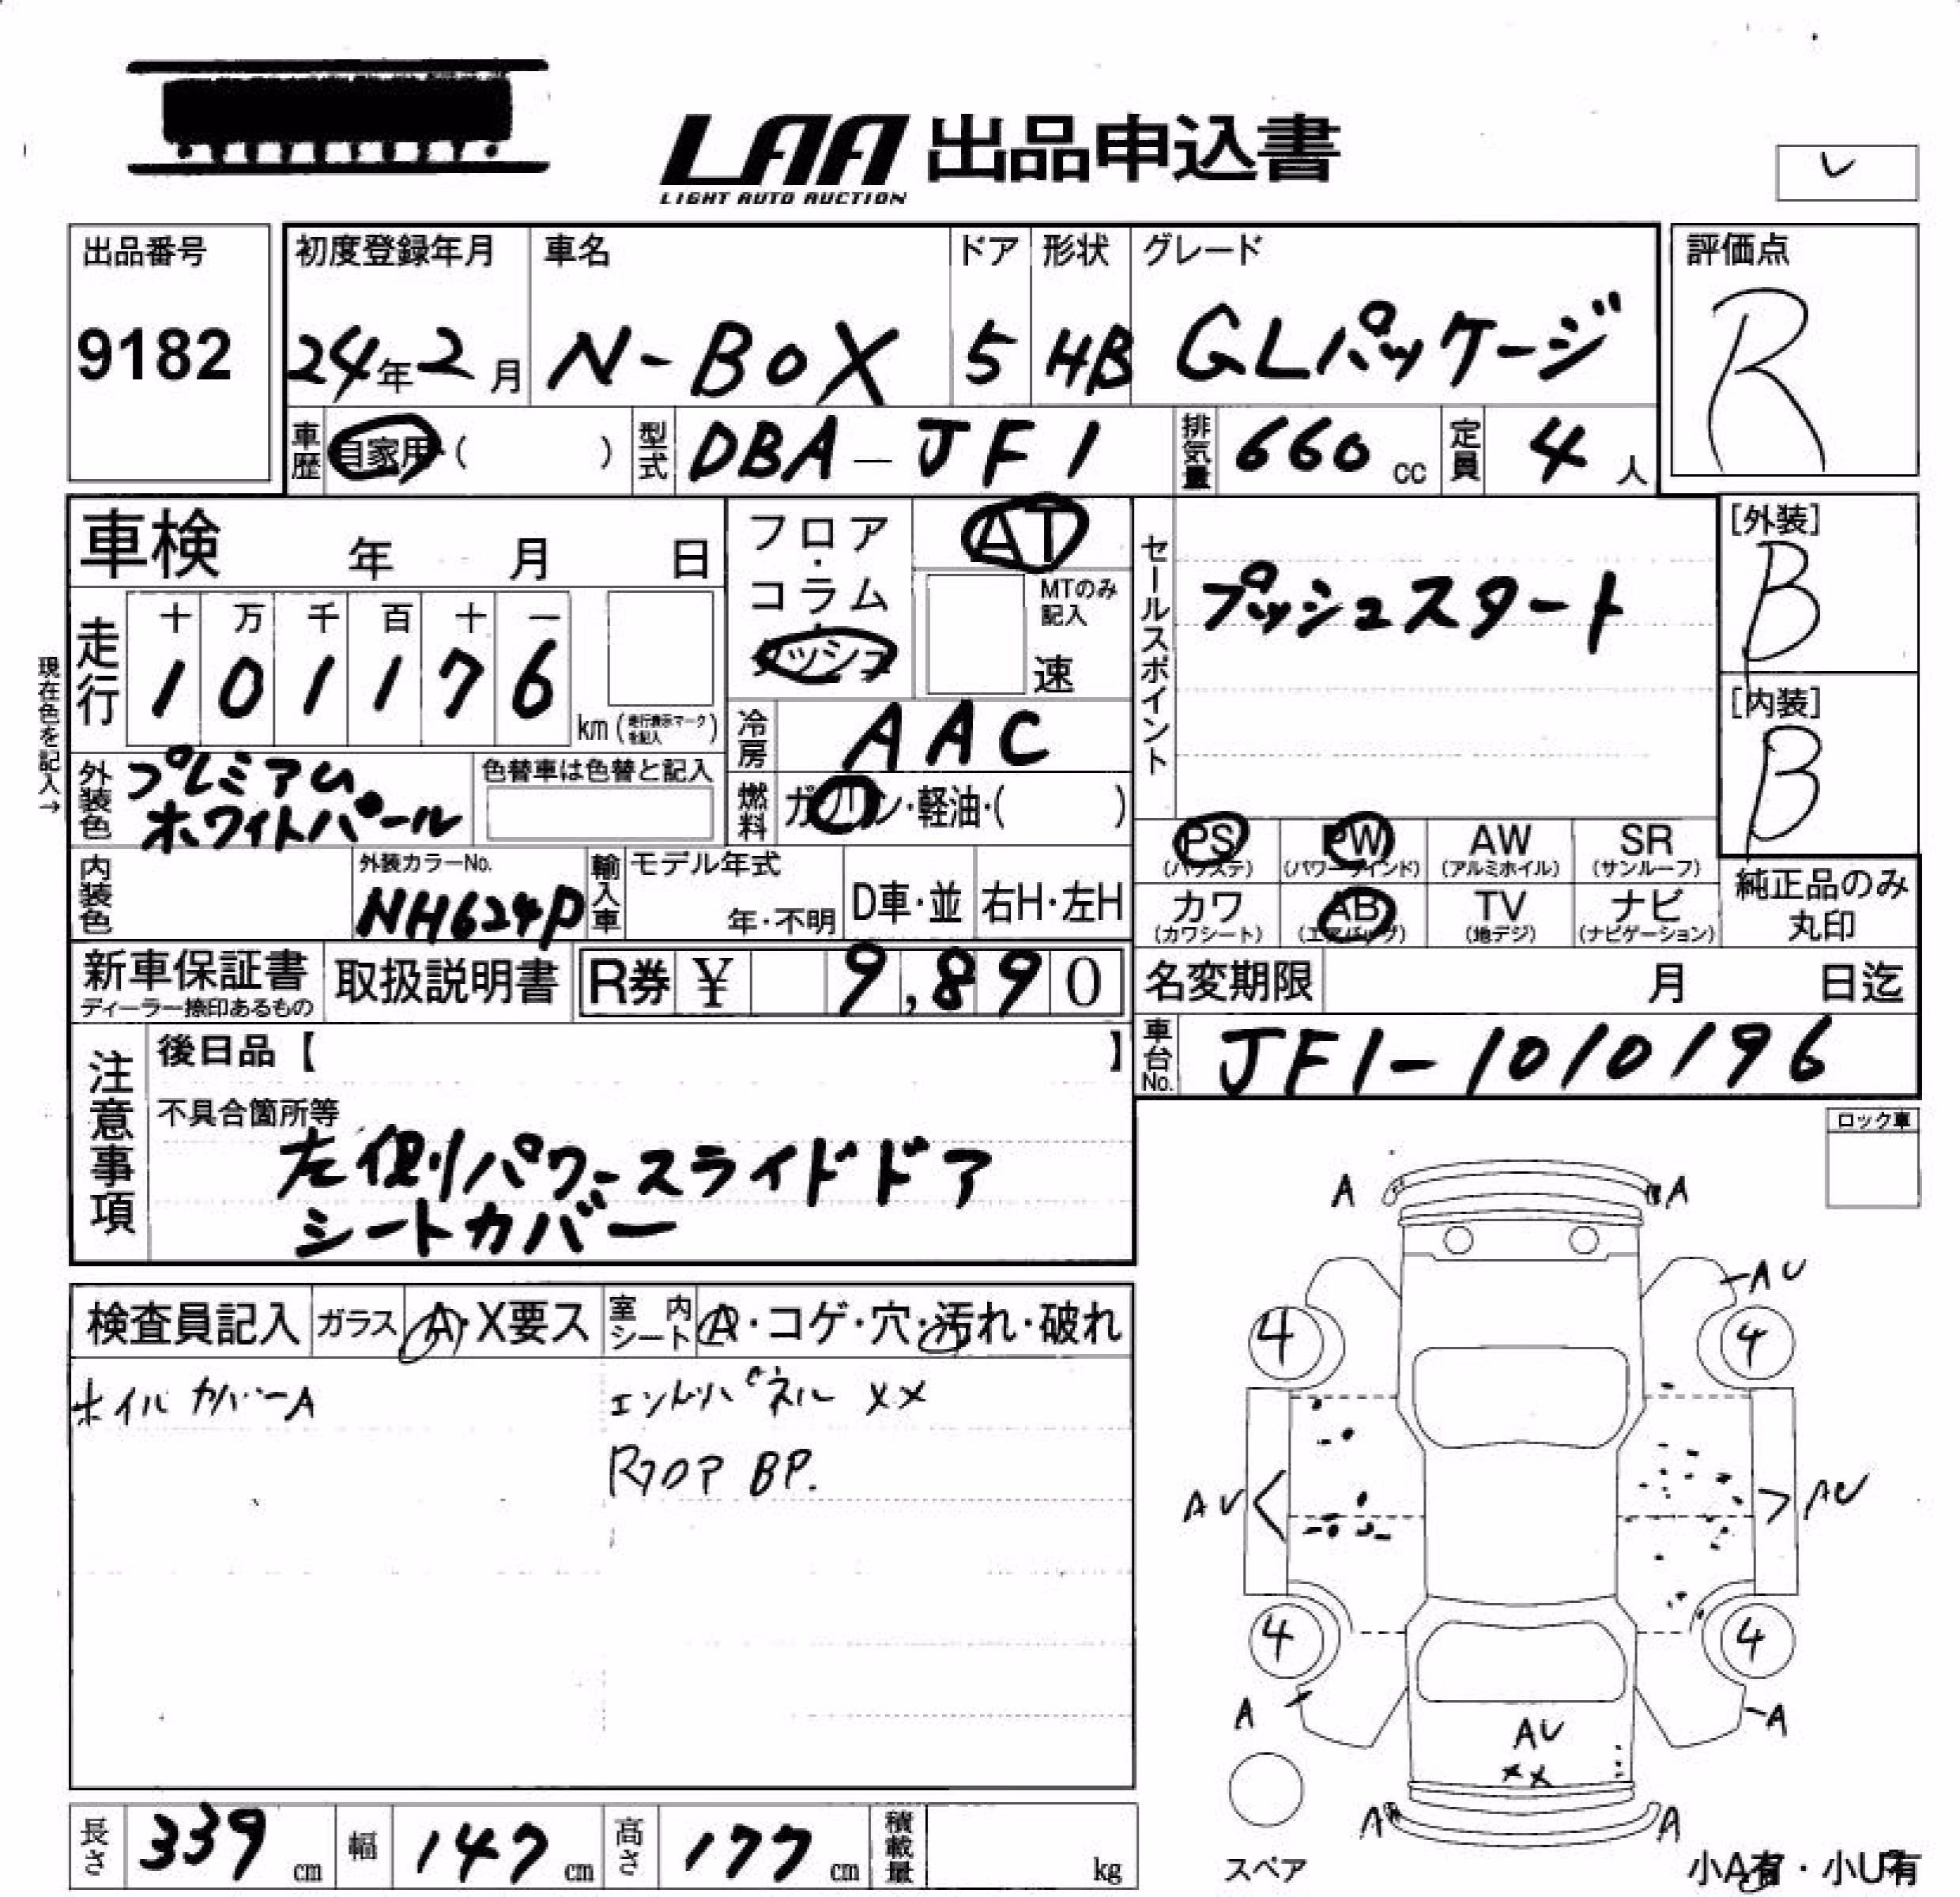 LAA 出品申込書
LIGHT AUTO AUCTION
レ
出品番号
9182
初度登録年月
24年2月
車名
N-BOX
ドア
5
形状
HB
グレード
GLパッケージ
評価点
R
車歴 自家用・( )
型式 DBA-JF1
排気量 660 cc
定員 4 人
車検 年 月 日
現在色を記入→
走行
十 万 千 百 十 一
1 0 1 1 7 6
km(走行表示マークを記入)
フロア・
コラム
ダッシュ
AT
MTのみ記入
速
冷房 AAC
燃料 ガソリン・軽油・( )
セールスポイント
プッシュスタート
[外装]
B
[内装]
B
外装色 プレミアム
ホワイトパール
色替車は色替と記入
内装色
外装カラーNo.
NH624P
輸入車 モデル年式
年・不明
D車・並
右H・左H
PS AW SR
PW
(パワステ) (パワーウインド) (アルミホイル) (サンルーフ)
カワ AB TV ナビ
(カワシート) (エアバッグ) (地デジ) (ナビゲーション)
純正品のみ
丸印
新車保証書
ディーラー捺印あるもの
取扱説明書
R券 ¥ 9,890
名変期限 月 日迄
車台No. JF1-1010196
注意事項
後日品【 】
不具合箇所等
左側パワースライドドア
シートカバー
ロック車
検査員記入
ガラス A・X要ス
室内シート A・コゲ・穴・汚れ・破れ
ホイルカバーA
エンドパネル XX
Rフロア BP.
A A
AU
4 4
AU AU
4 4
A A
AU
XX
A A
スペア
小A有・小U有
長さ 339 cm
幅 147 cm
高さ 177 cm
積載量 kg